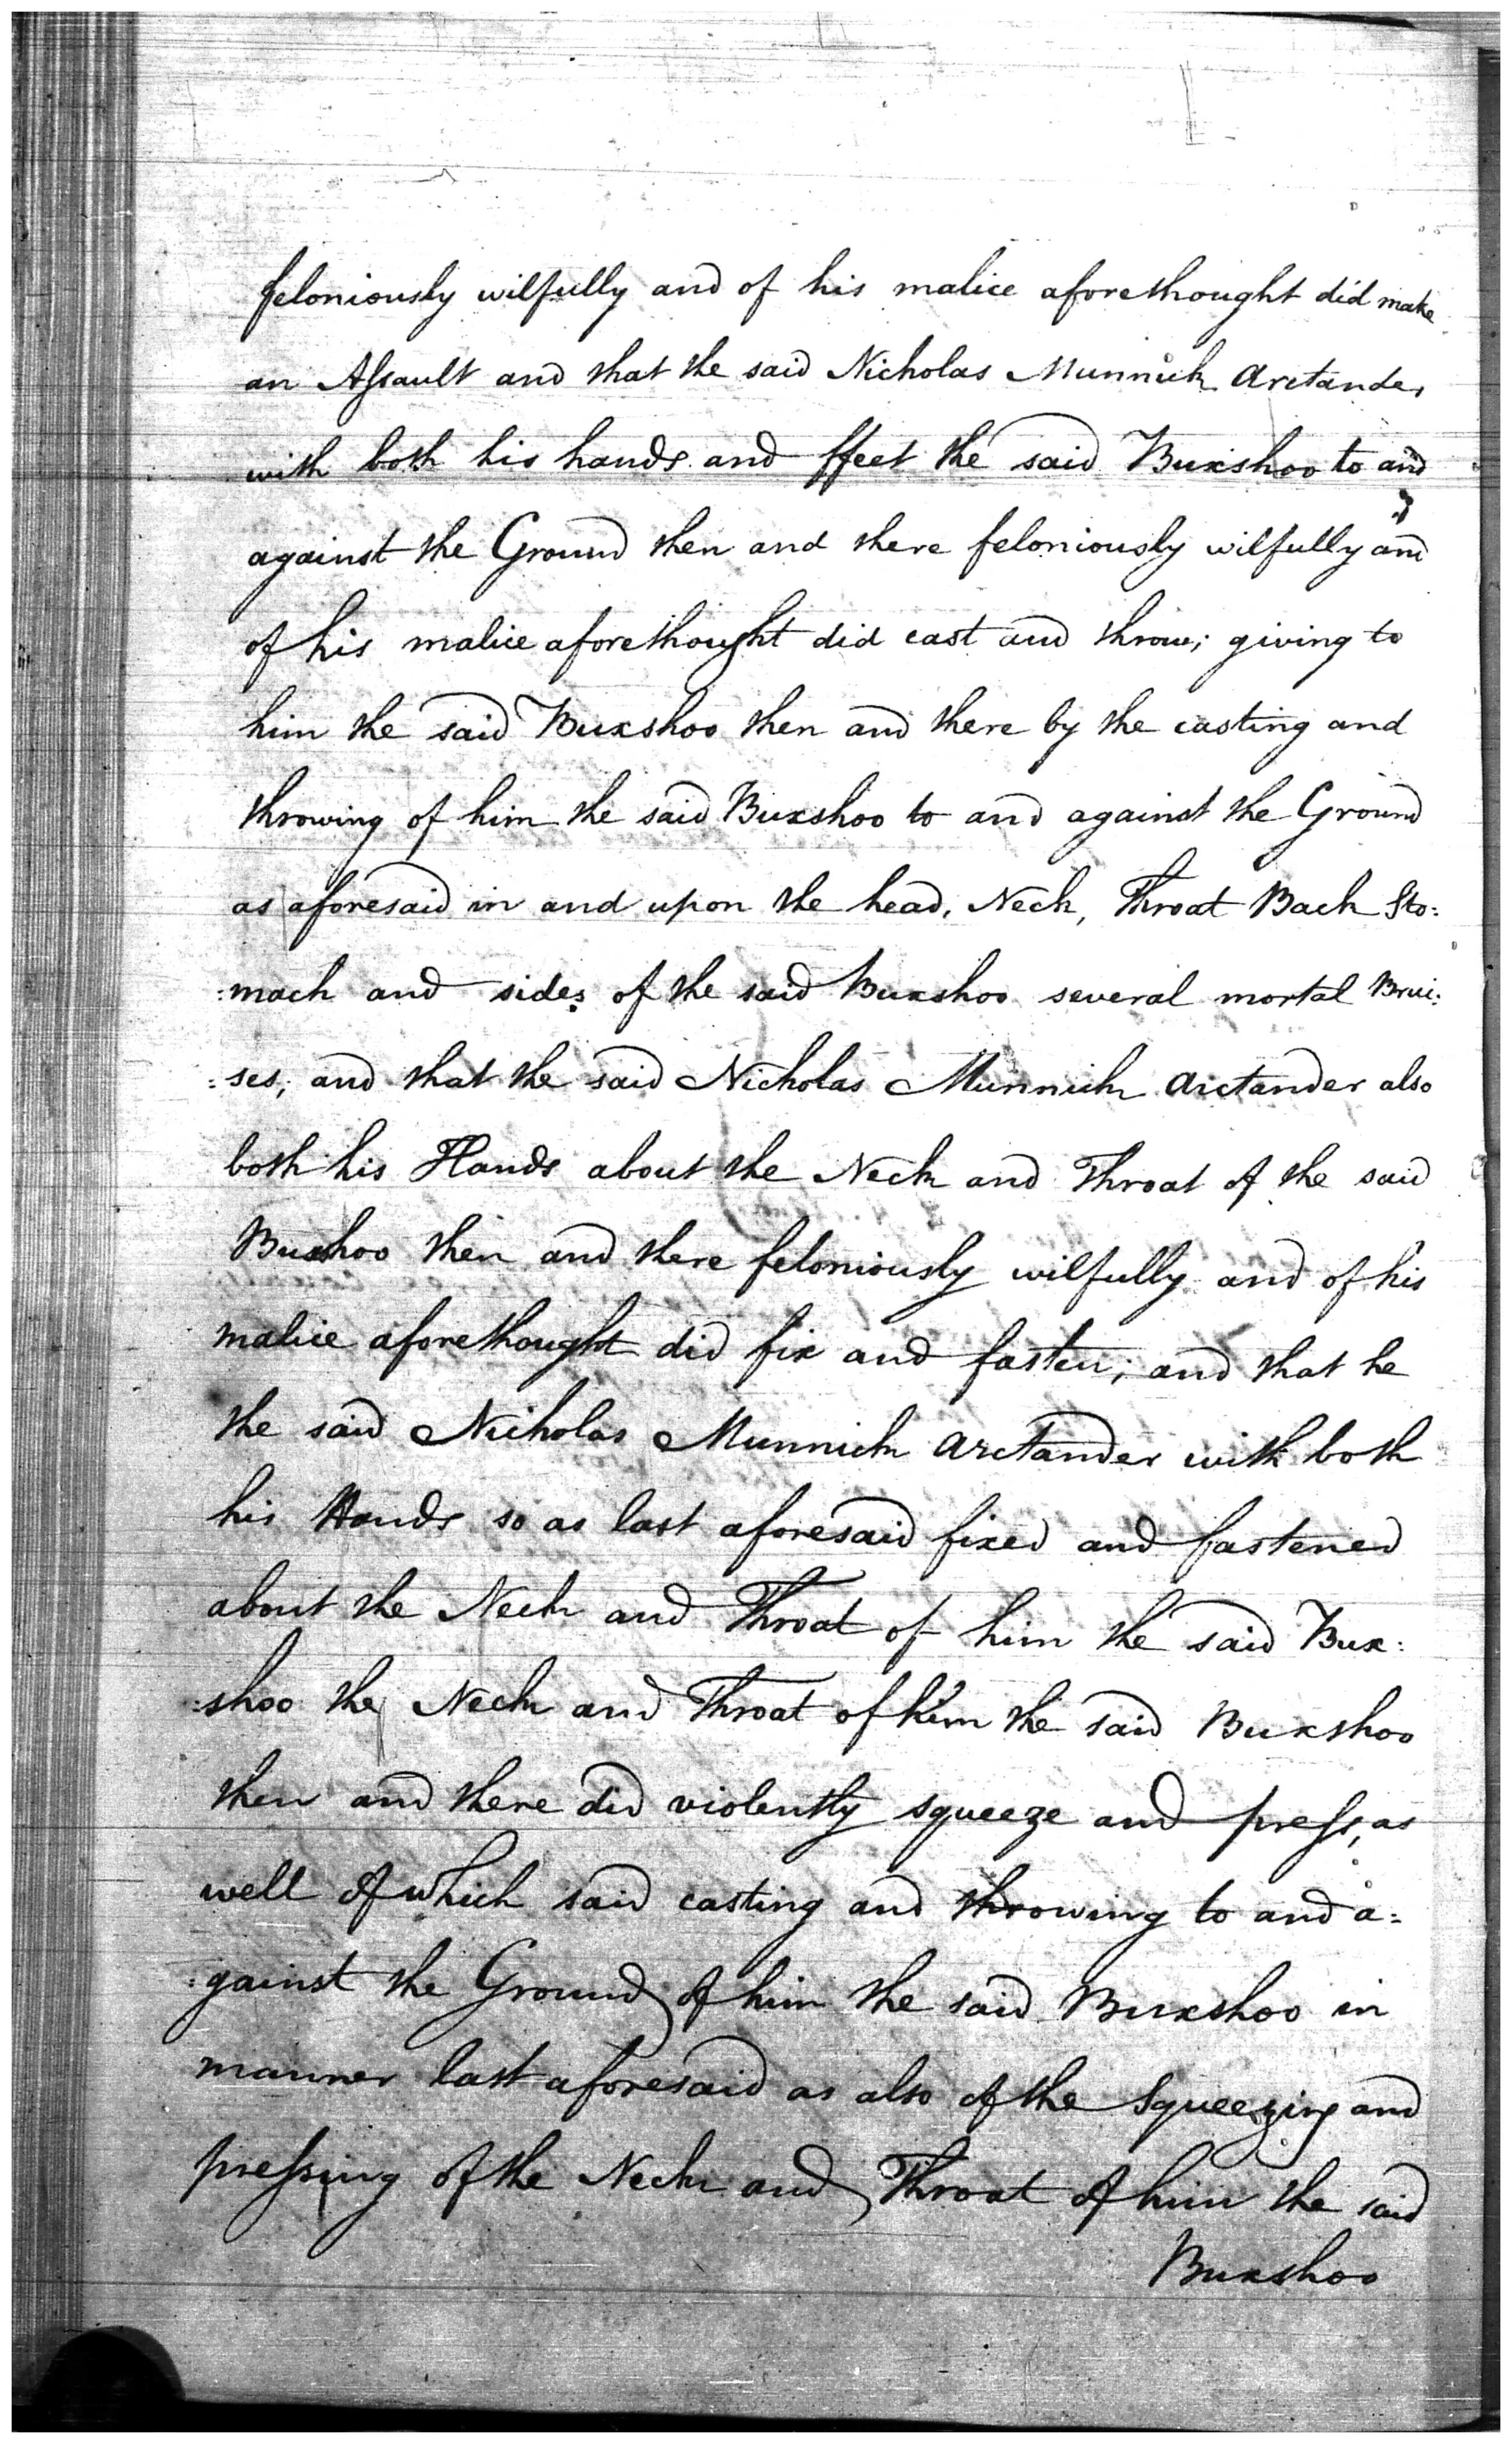 feloniously wilfully and of his malice aforethought did make
an Aſsault and that the said Nicholas Munnick Arctander
with both his hands and ffeet the said Buxshoo to and
against the Ground then and there feloniously wilfully and
of his malice aforethought did cast and throw; giving to
him the said Buxshoo then and there by the casting and
throwing of him the said Buxshoo to and against the Ground
as aforesaid in and upon the head, Neck, Throat Back Sto:
:mach and sides of the said Buxshoo several mortal Brui:
:ses; and that the said Nicholas Munnick Arctander also
both his Hands about the Neck and Throat of the said
Buxshoo then and there feloniously wilfully and of his
malice aforethought did fix and fasten; and that he
the said Nicholas Munnick Arctander with both
his Hands so as last aforesaid fixed and fastened
about the Neck and Throat of him the said Bux:
:shoo the Neck and Throat of him the said Buxshoo
then and there did violently squeeze and preſs, as
well of which said casting and throwing to and a:
:gainst the Ground of him the said Buxshoo in
manner last aforesaid as also of the Squeezing and
preſsing of the Neck and Throat of him the said
Buxshoo